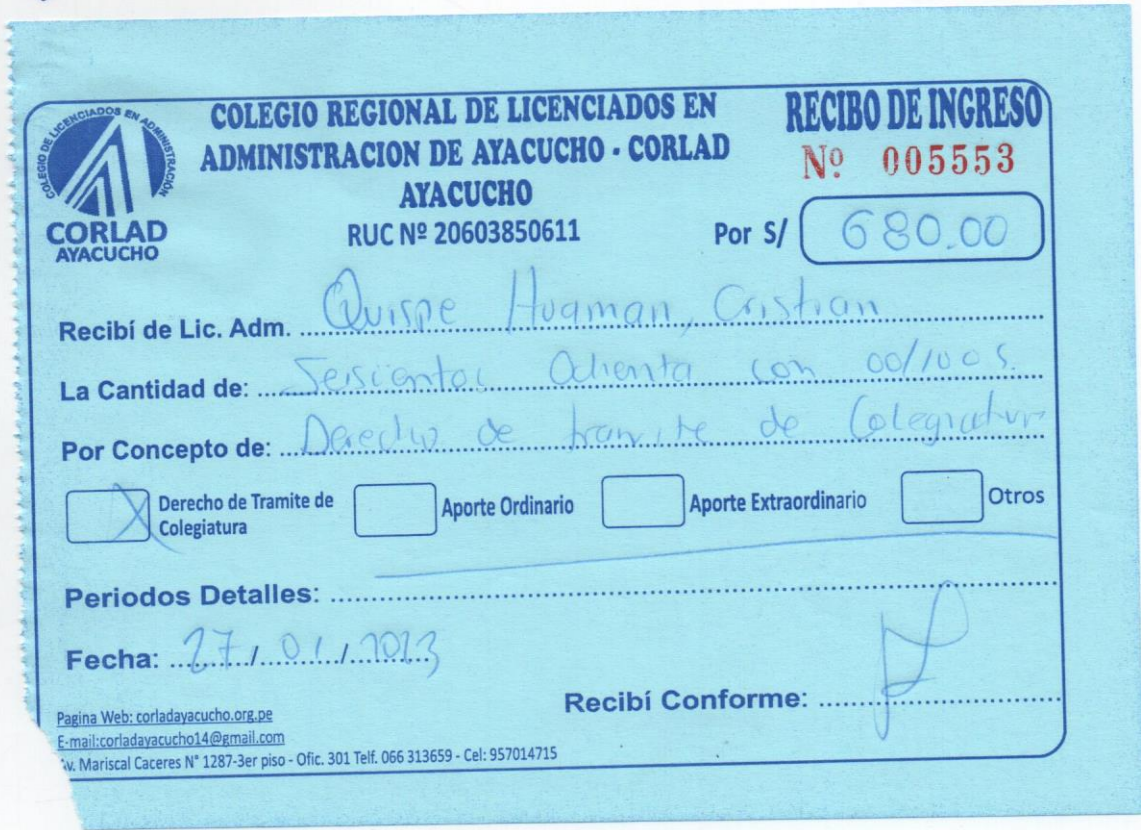 COLEGIO DE LICENCIADOS EN ADMINISTRACIÓN
CORLAD
AYACUCHO
COLEGIO REGIONAL DE LICENCIADOS EN
ADMINISTRACION DE AYACUCHO - CORLAD
AYACUCHO
RUC Nº 20603850611
RECIBO DE INGRESO
Nº 005553
Por S/ 680.00
Recibí de Lic. Adm. Quispe Huaman, Cristian
La Cantidad de: Seiscientos Ochenta con 00/100 S.
Por Concepto de: Derecho de tramite de Colegiatura
X Derecho de Tramite de Colegiatura Aporte Ordinario Aporte Extraordinario Otros
Periodos Detalles:
Fecha: 27/01/2023
Recibí Conforme:
Pagina Web: corladayacucho.org.pe
E-mail:corladayacucho14@gmail.com
Av. Mariscal Caceres N° 1287-3er piso - Ofic. 301 Telf. 066 313659 - Cel: 957014715